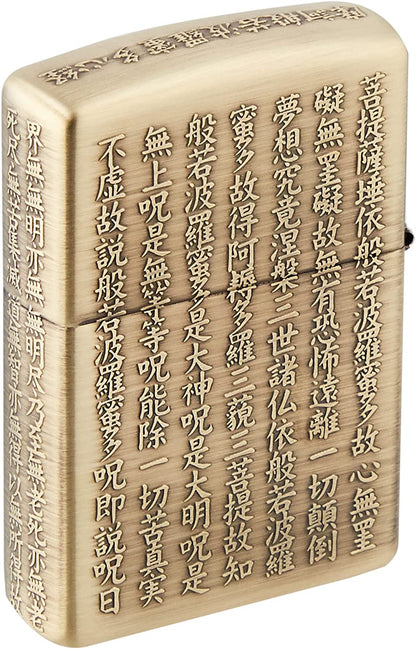 摩訶般若波羅蜜多心経
界無無明亦無無明尽乃至無老死亦無老
死尽無苦集滅道無智亦無得以無所得
菩提薩埵依般若波羅蜜多故心無罣
礙無罣礙故無有恐怖遠離一切顛倒
夢想究竟涅槃三世諸仏依般若波羅
蜜多故得阿耨多羅三藐三菩提故知
般若波羅蜜多是大神呪是大明呪是
無上呪是無等等呪能除一切苦真実
不虚故説般若波羅蜜多呪即説呪日